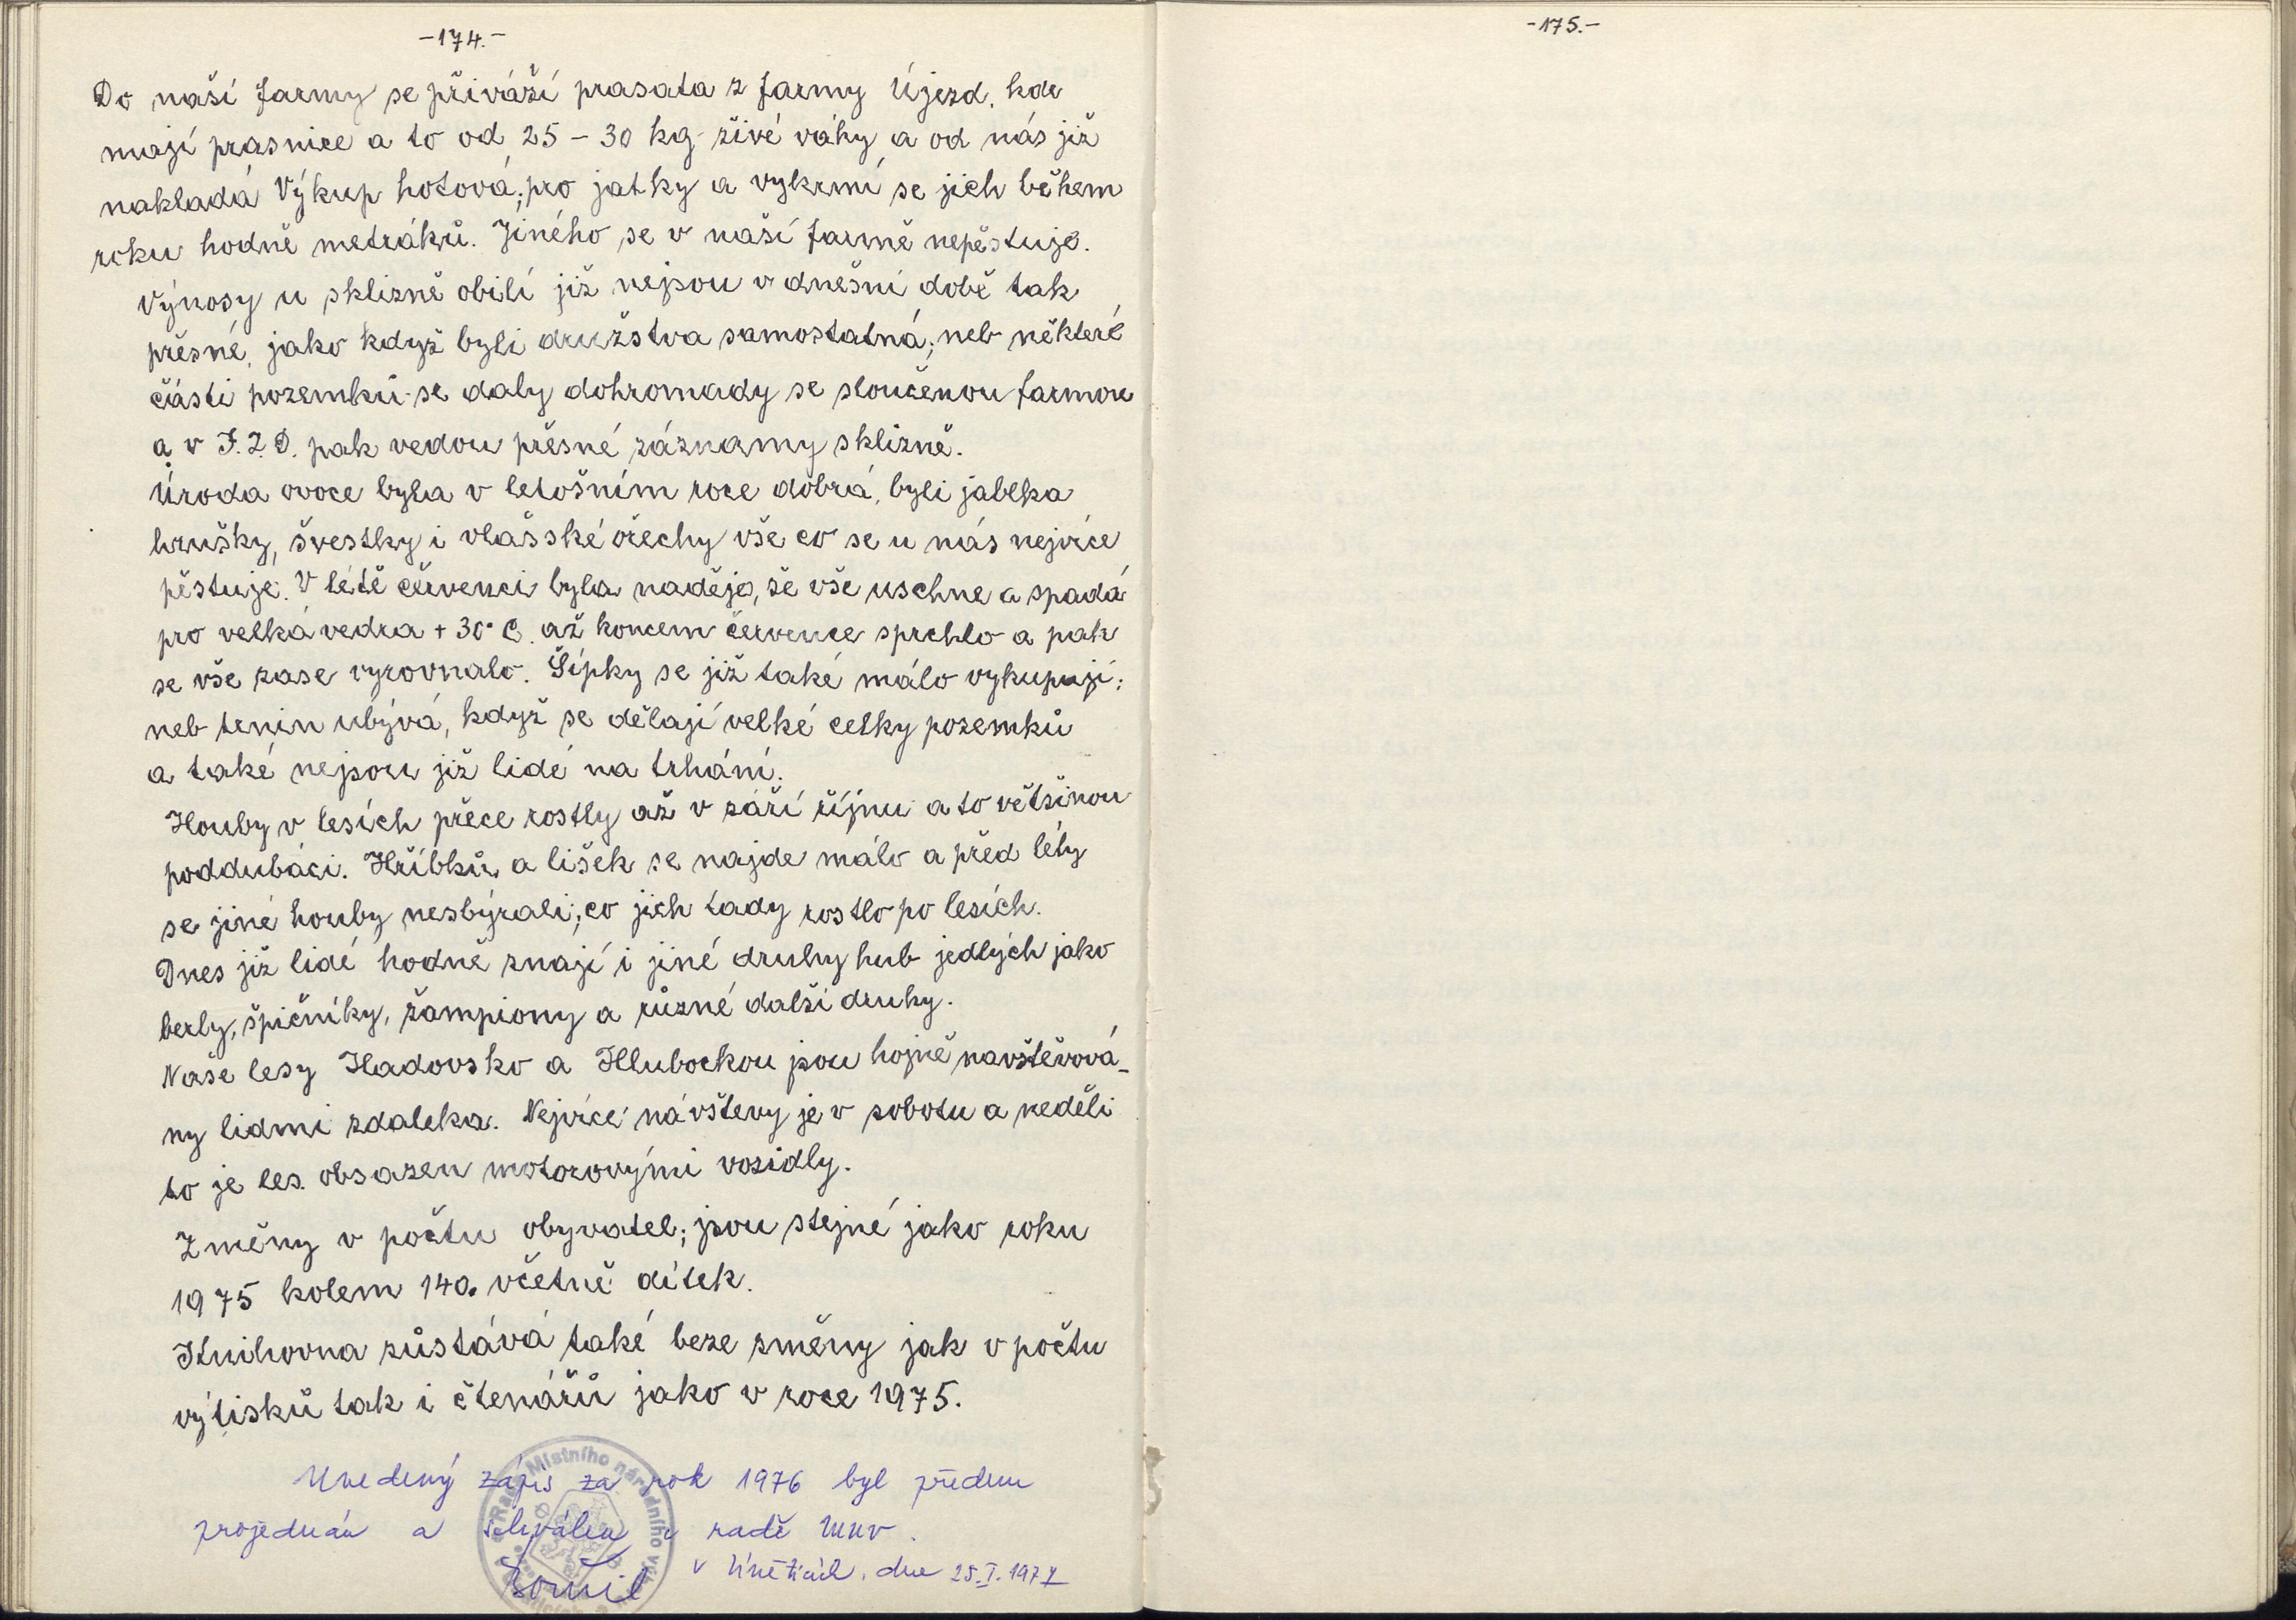 -174.-
Do naší farmy se přiváží prasata z farmy Újezd, kde
mají prasnice a to od 25 - 30 kg živé váhy a od nás již
nakladá Výkup hotová; pro jatky a vykrmí se jich během
roku hodně metráků. Jiného se v naší farmě nepěstuje.
Výnosy u sklizně obilí již nejsou v dnešní době tak
přesné, jako když byli družstva samostatná; neb některé
části pozemků se daly dohromady se sloučenou farmou
a v J.Z.D. pak vedou přesné záznamy sklizně.
Úroda ovoce byla v letošním roce dobrá, byli jablka
hrušky, švestky i vlašské ořechy vše co se u nás nejvíce
pěstuje. V létě červenci byla naděje, že vše uschne a spadá
pro velká vedra + 30° C. až koncem července sprchlo a pak
se vše zase vyrovnalo. Šípky se již také málo vykupují;
neb tenin ubývá, když se dělají velké celky pozemků
a také nejsou již lidé na trhání.
Houby v lesích přece rostly až v září říjnu a to většinou
poddubáci. Hříbků a lišek se najde málo a před léty
se jiné houby nesbýrali; co jich tady rostlo po lesích.
Dnes již lidé hodně znají i jiné druhy hub jedlých jako
berly, špičníky, žampiony a různé další druhy.
Naše lesy Hadovsko a Hlubockou jsou hojně navštěvová-
ny lidmi zdaleka. Nejvíce návštevy je v sobotu a neděli
to je les obsazen motorovými vozidly.
Změny v počtu obyvatel; jsou stejné jako roku
1975 kolem 140. včetně dítek.
Knihovna zůstává také beze změny jak v počtu
výtisků tak i čtenářů jako v roce 1975.
Uvedený zápis za rok 1976 byl předem
projednán a schválen v radě MNV.
v Úněticích, dne 25.I.1977
Rada Místního národního
-175.-